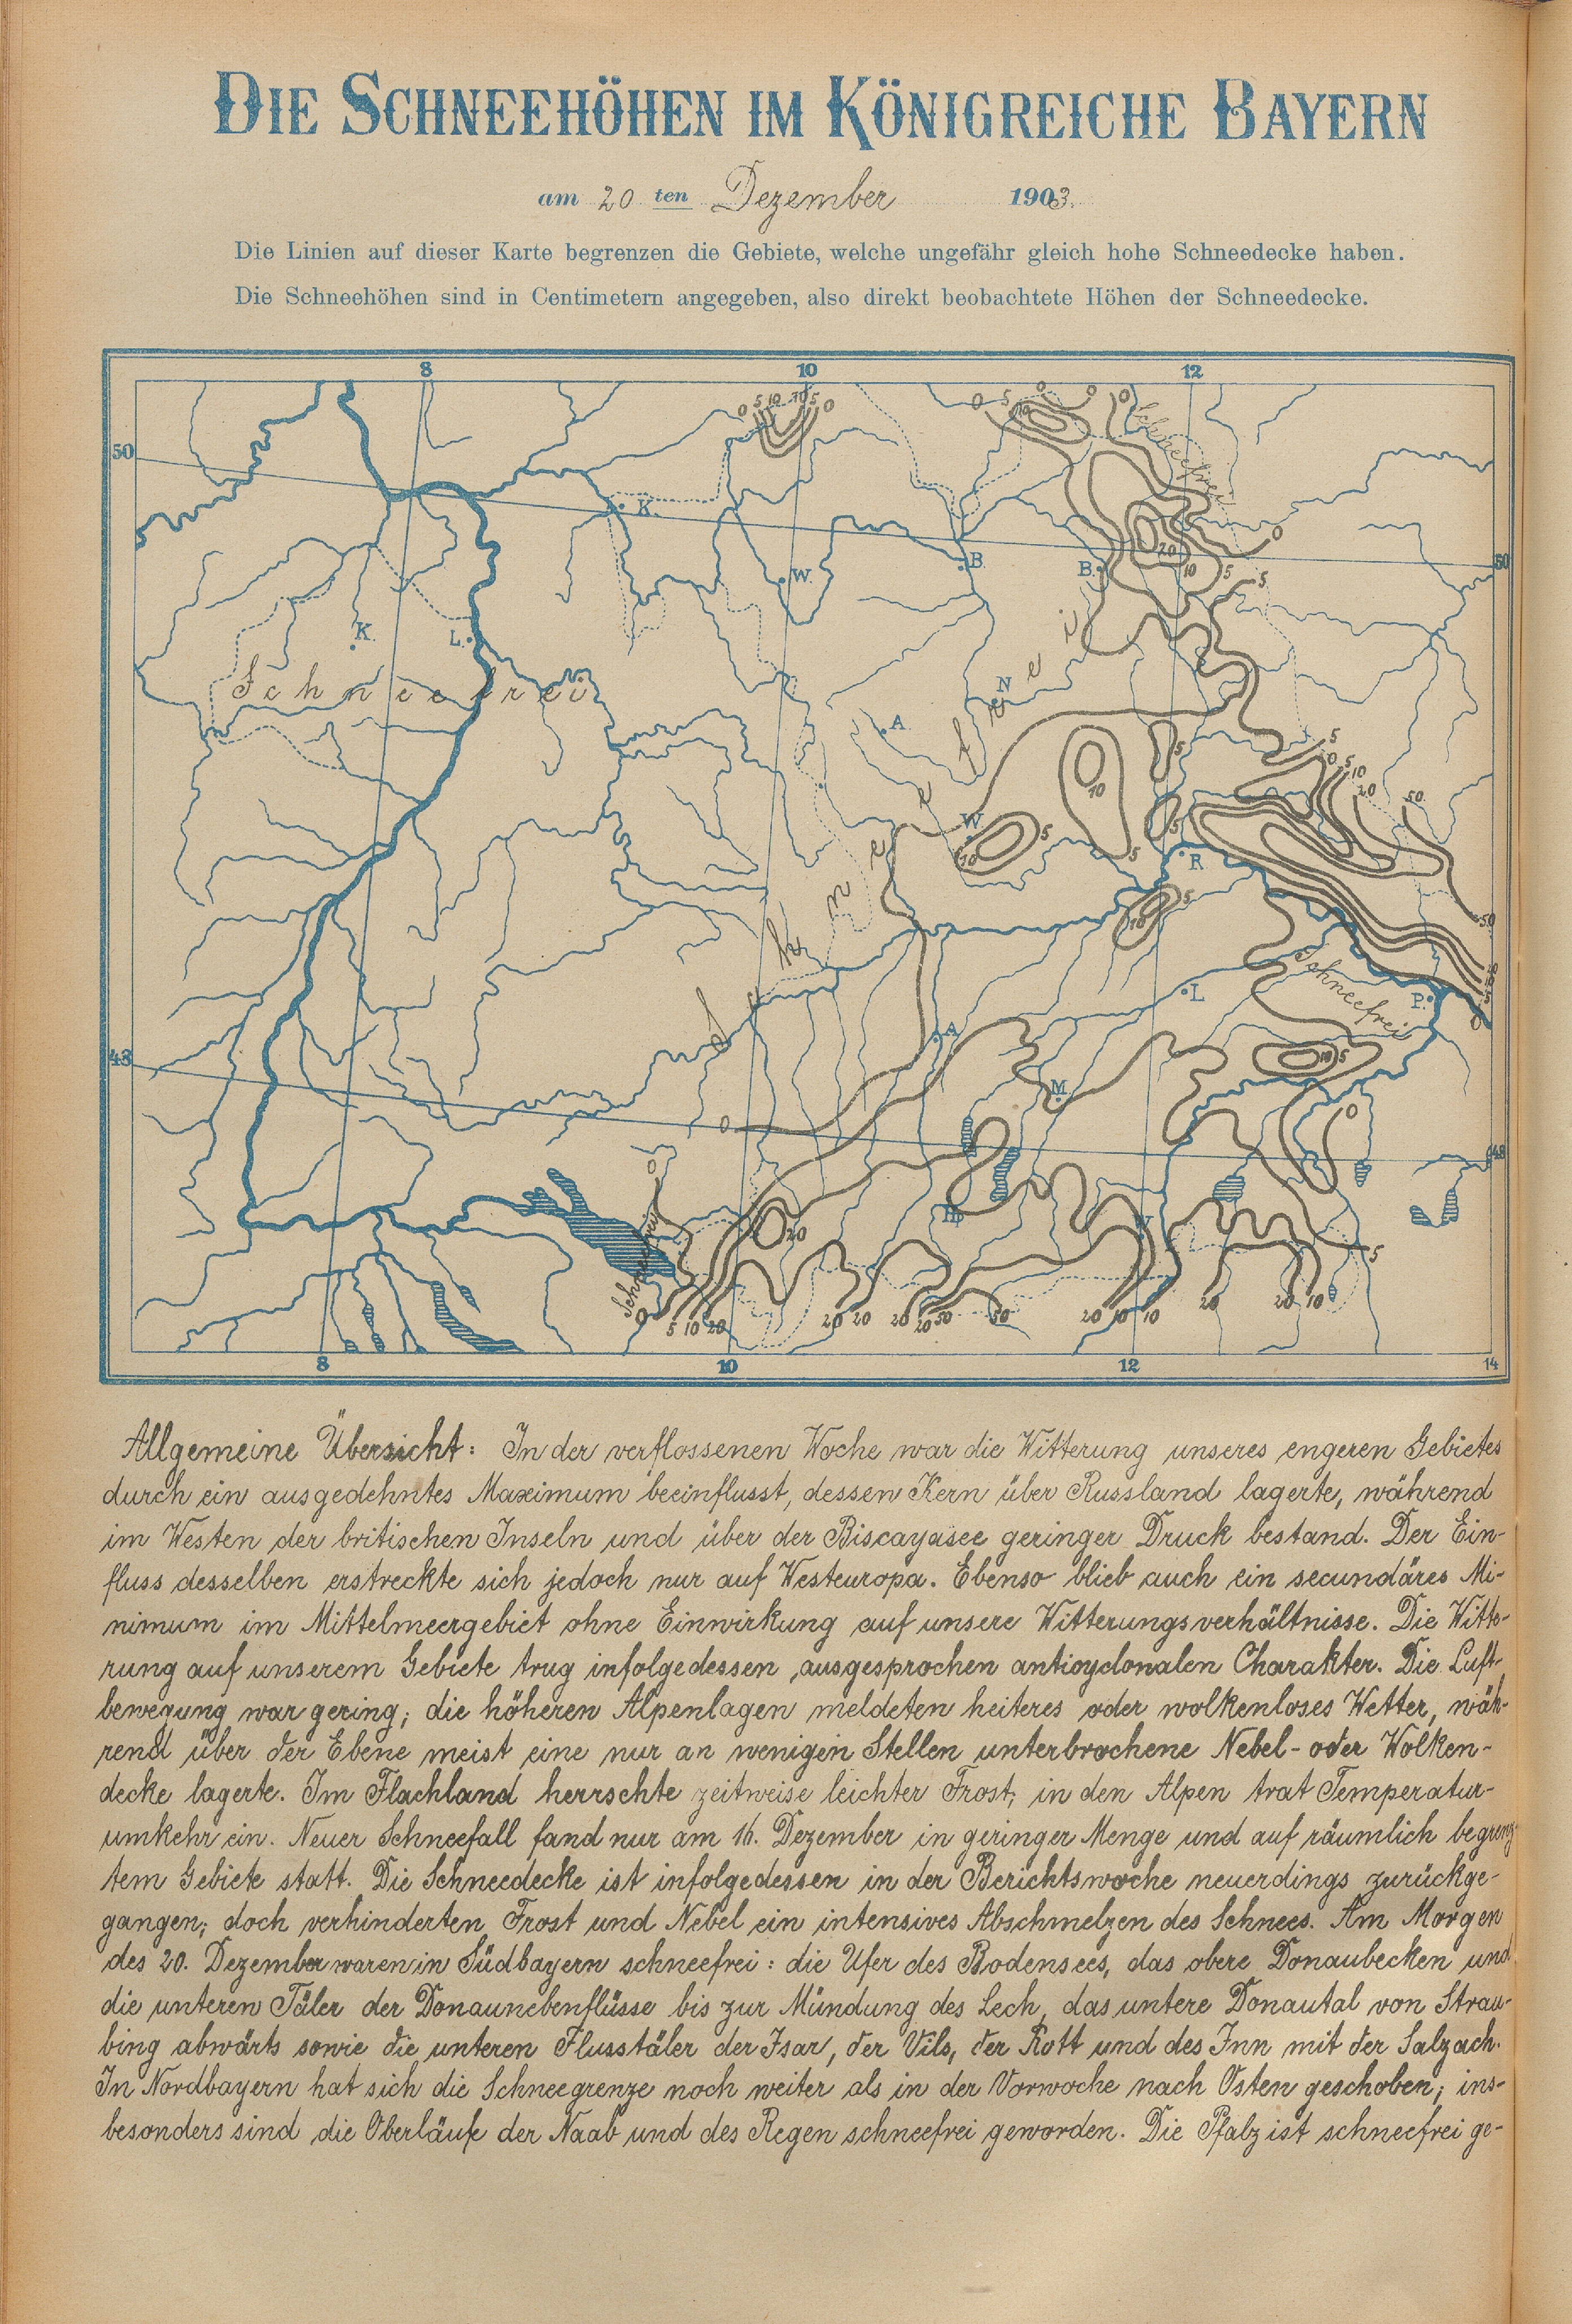 DIE SCHNEEHÖHEN IM KÖNIGREICHE BAYERN
am 20 ten Dezember 1903.
Die Linien auf dieser Karte begrenzen die Gebiete, welche ungefähr gleich hohe Schneedecke haben.
Die Schneehöhen sind in Centimetern angegeben, also direkt beobachtete Höhen der Schneedecke.
8 10 12
0 5 10 10 5 0
0 5 10 0 0 0
Schneefrei
50
K.
W.
B.
B.
20
10
5
0
50
5
K.
L.
Schneefrei
Schneefrei
N
A
5
5
0 5 10
20
50
10
W
5
10
5
5
R
5
10
50
Schneefrei
L
P.
0
A
48
10 5
M
0
0
0
48
Schneefrei
20
5
0 5 10 20
20 20 20 20 50 50 20 10 10 20 20 10
8 10 12 14
Allgemeine Übersicht: In der verflossenen Woche war die Witterung unseres engeren Gebietes
durch ein ausgedehntes Maximum beeinflusst, dessen Kern über Russland lagerte, während
im Westen der britischen Inseln und über der Biscayasee geringer Druck bestand. Der Ein-
fluss desselben erstreckte sich jedoch nur auf Westeuropa. Ebenso blieb auch ein secundäres Mi-
nimum im Mittelmeergebiet ohne Einwirkung auf unsere Witterungsverhältnisse. Die Witte-
rung auf unserem Gebiete trug infolgedessen ausgesprochen anticyclonalen Charakter. Die Luft-
bewegung war gering; die höheren Alpenlagen meldeten heiteres oder wolkenloses Wetter, wäh-
rend über der Ebene meist eine nur an wenigen Stellen unterbrochene Nebel- oder Wolken-
decke lagerte. Im Flachland herrschte zeitweise leichter Frost; in den Alpen trat Temperatur-
umkehr ein. Neuer Schneefall fand nur am 16. Dezember in geringer Menge und auf räumlich begrenz-
tem Gebiete statt. Die Schneedecke ist infolgedessen in der Berichtswoche neuerdings zurückge-
gangen; doch verhinderten Frost und Nebel ein intensives Abschmelzen des Schnees. Am Morgen
des 20. Dezember waren in Südbayern schneefrei: die Ufer des Bodensees, das obere Donaubecken und
die unteren Täler der Donaunebenflüsse bis zur Mündung des Lech, das untere Donautal von Strau-
bing abwärts sowie die unteren Flusstäler der Isar, der Vils, der Rott und des Inn mit der Salzach.
In Nordbayern hat sich die Schneegrenze noch weiter als in der Vorwoche nach Osten geschoben; ins-
besonders sind die Oberläufe der Naab und des Regen schneefrei geworden. Die Pfalz ist schneefrei ge-